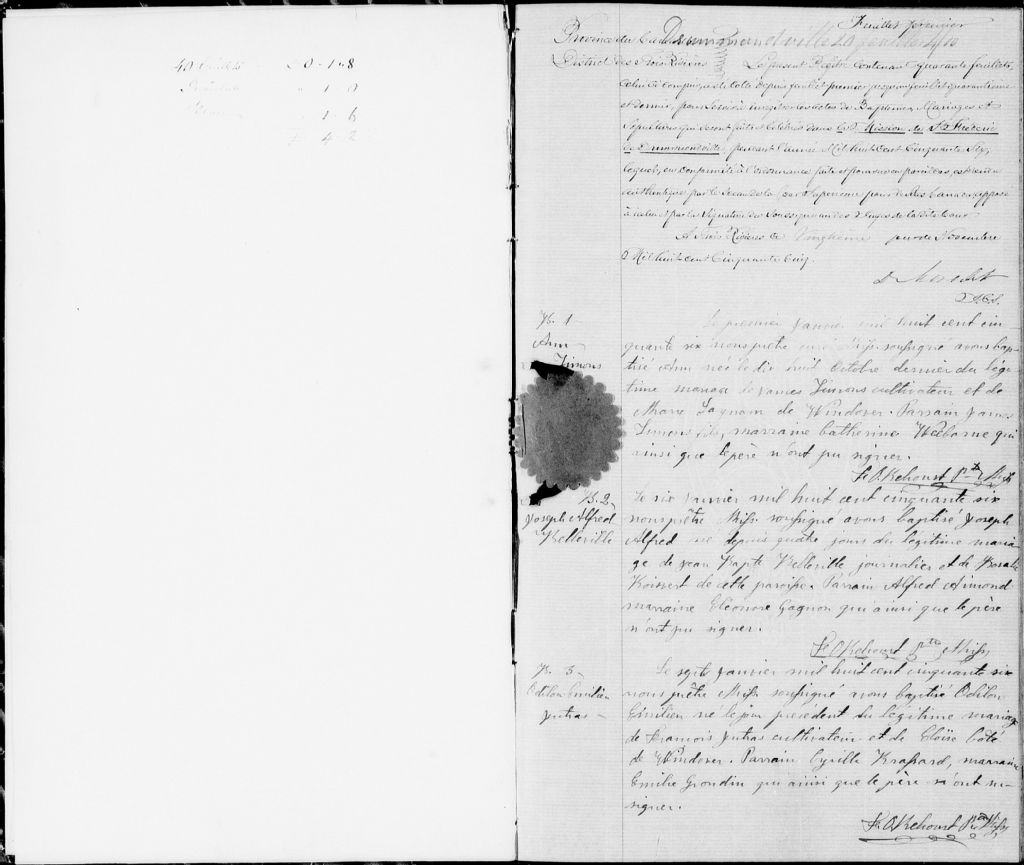 40 feuillets 0-1-8
1-0
1-6
£ 4-2
Feuillet premier
Province du Canada Drummondville
District des Trois Rivières Le présent Registre contenant quarante feuillets,
celui ci compris et cotté depuis feuillet premier jusqu'au feuillet quarantième
et dernier, pour servir à enregistrer les actes de Baptêmes, Mariages et
Sépultures qui seront faits et célébrés dans la Mission de St Frédéric
de Drummondville, pendant l'année Mil huit cent Cinquante Six,
lequel, en conformité à l'ordonnance faite et pourvue en pareil cas, est rendu
authentique par le Sceau de la Cour Supérieure pour le Bas Canada apposé
à icelui et par la Signature du Soussigné un des Juges de la dite Cour
A Trois Rivières le Vingtième jour de Novembre
Mil huit cent Cinquante Cinq.
D. Mondelet
J.C.S.
B. 1
Ann
Timons
Le premier Janvier mil huit cent cin-
quante six nous prêtre curé Miss. soussigné avons bap-
tisé Ann née le dix huit Octobre dernier du légi-
time mariage de James Timons cultivateur et de
Marie Gagnom de Windover. Parrain James
Timons fils, marraine Catherine Weborne qui
ainsi que le père n'ont pu signer.
F. O. Kehourt Ptre Miss
B. 2
Joseph Alfred
Belleville
Le six Janvier mil huit cent cinquante six
nous prêtre Miss. soussigné avons baptisé Joseph
Alfred né depuis quatre jours du légitime maria-
ge de Jean Bapte Belleville journalier et de Rosalie
Boisvert de cette paroisse. Parrain Alfred Aimond
marraine Eléonore Gagnon qui ainsi que le père
n'ont pu signer.
F. O. Kehourt Ptre Miss
B. 3
Odilon Emilien
Jutras
Le sept Janvier mil huit cent cinquante six
nous prêtre Miss. soussigné avons baptisé Odilon
Emilien né le jour précédent du légitime mariage
de François Jutras cultivateur et de Eloïse Côté
de Windover. Parrain Cyrille Brassard, marraine
Emilie Grondin qui ainsi que le père n'ont su
signer.
F. O. Kehourt Ptre Miss